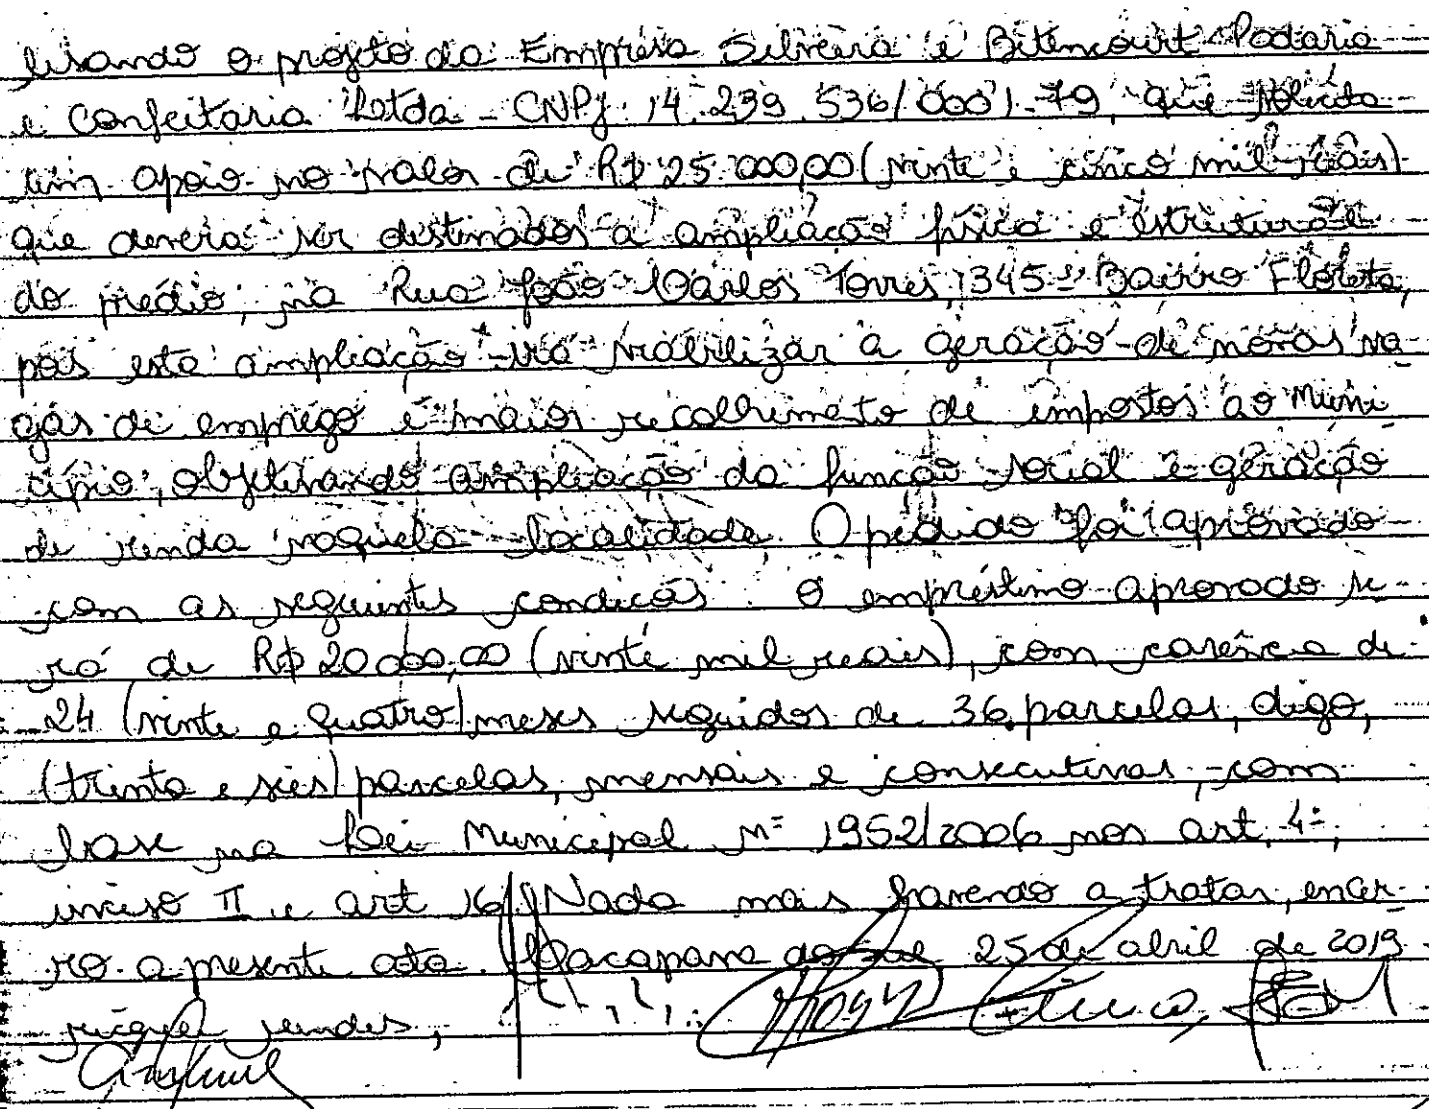 lisando o projeto da Empresa Silveira e Bitencourt Padaria
e Confeitaria Ltda - CNPJ 14.239.536/0001-79, que solicita
um apoio no valor de R$ 25.000,00 (vinte e cinco mil reais)
que deverá ser destinados a ampliação física e estrutural
do prédio, na Rua João Carlos Torres, 1345 - Bairro Floresta,
pois esta ampliação irá viabilizar a geração de novas va-
gas de emprego e maior recolhimento de impostos ao Muni
cípio, objetivando ampliação da função social e geração
de renda naquela localidade. O pedido foi aprovado
com as seguintes condições. O empréstimo aprovado se
rá de R$ 20.000,00 (vinte mil reais), com carência de
24 (vinte e quatro) meses seguidos de 36 parcelas, digo,
(trinta e seis) parcelas, mensais e consecutivas, com
base na Lei Municipal nº 1952/2006 nos art. 4º,
inciso II e art 16. Nada mais havendo a tratar, encer-
ro a presente ata. Caçapava do Sul 25 de abril de 2019